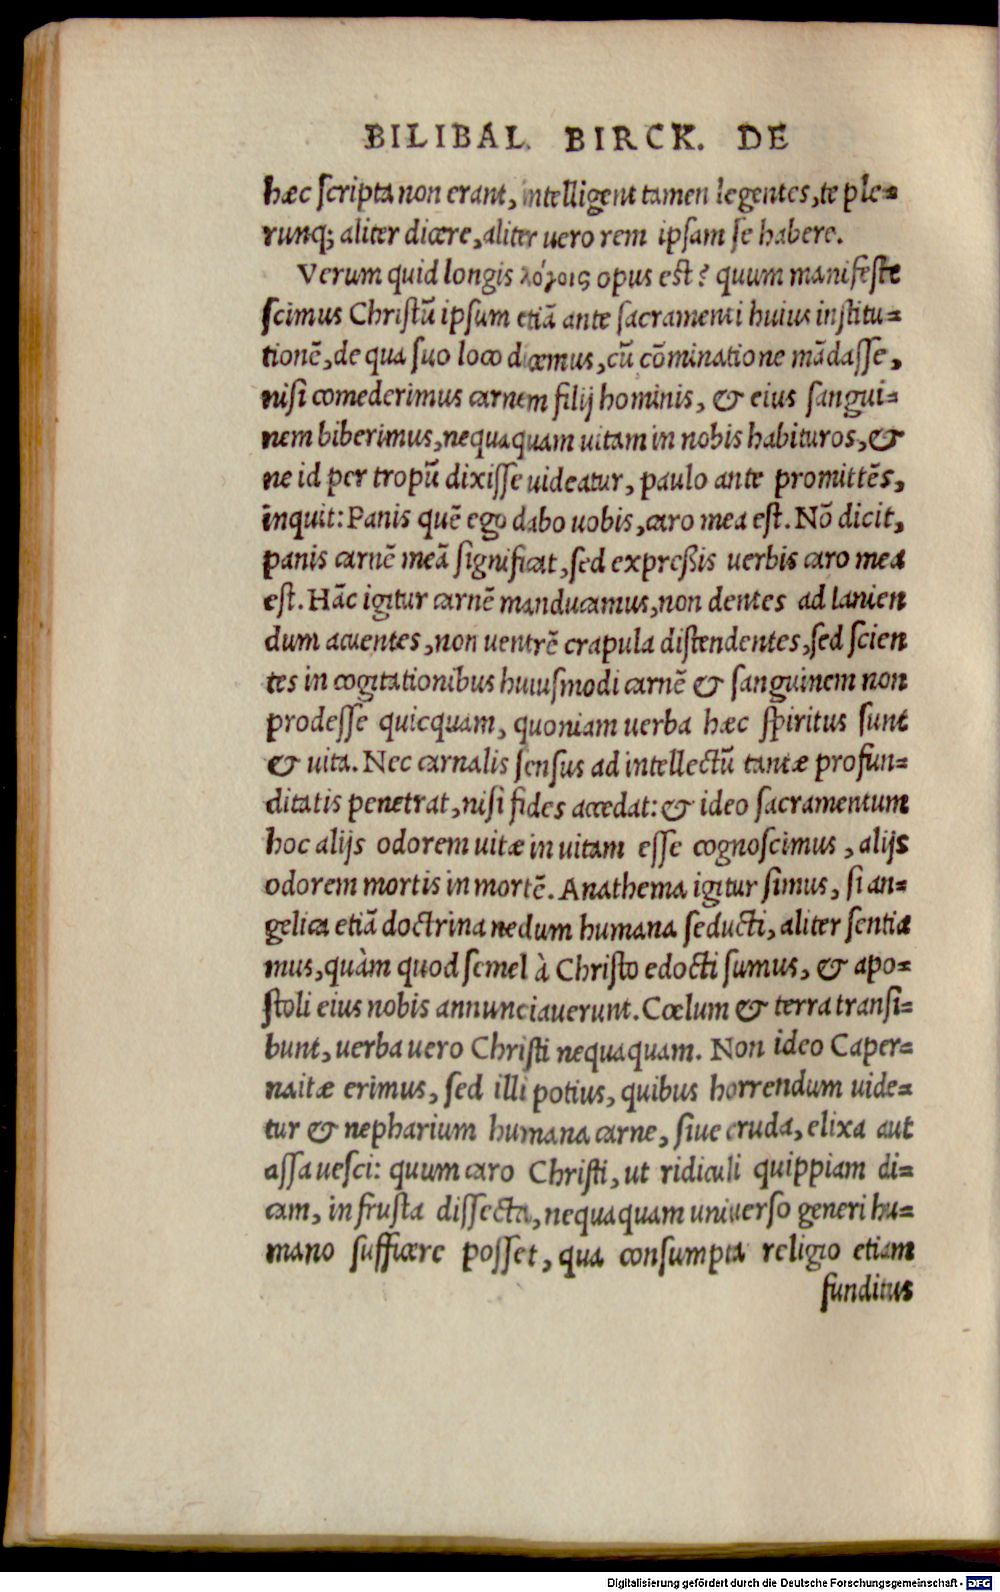 BILIBAL. BIRCK. DE
hæc ſcripta non erant, intelligent tamen legentes, te ple=
runq; aliter dicere, aliter uero rem ipſam ſe habere.
Verum quid longis λόγοις opus eſt? quum manifeſte
ſcimus Chriſtũ ipſum etiã ante ſacramenti huius inſtitu=
tionẽ, de qua ſuo loco dicemus, cũ cõminatione mãdaſſe,
niſi comederimus carnem filij hominis, & eius ſangui=
nem biberimus, nequaquam uitam in nobis habituros, &
ne id per tropũ dixiſſe uideatur, paulo ante promittẽs,
inquit: Panis quẽ ego dabo uobis, caro mea eſt. Nõ dicit,
panis carnẽ meã ſignificat, ſed expreßis uerbis caro mea
eſt. Hãc igitur carnẽ manducamus, non dentes ad lanien
dum acuentes, non uentrẽ crapula diſtendentes, ſed ſcien
tes in cogitationibus huiuſmodi carnẽ & ſanguinem non
prodeſſe quicquam, quoniam uerba hæc ſpiritus ſunt
& uita. Nec carnalis ſenſus ad intellectũ tantæ profun=
ditatis penetrat, niſi fides accedat: & ideo ſacramentum
hoc alijs odorem uitæ in uitam eſſe cognoſcimus, alijs
odorem mortis in mortẽ. Anathema igitur ſimus, ſi an=
gelica etiã doctrina nedum humana ſeducti, aliter ſentia
mus, quàm quod ſemel à Chriſto edocti ſumus, & apo=
ſtoli eius nobis annunciauerunt. Cœlum & terra tranſi=
bunt, uerba uero Chriſti nequaquam. Non ideo Caper=
naitæ erimus, ſed illi potius, quibus horrendum uide=
tur & nepharium humana carne, ſiue cruda, elixa aut
aſſa ueſci: quum caro Chriſti, ut ridiculi quippiam di=
cam, in fruſta diſſecta, nequaquam uniuerſo generi hu=
mano ſufficere poſſet, qua conſumpta religio etiam
funditus
Digitalisierung gefördert durch die Deutsche Forschungsgemeinschaft - DFG